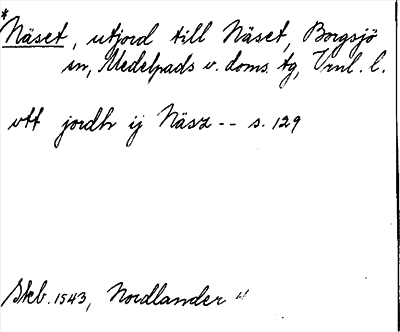 *Näset, utjord till Näset, Borgsjö
sn, Medelpads v. doms. tg, Vrnl. l.
vtt jordh ij Näsz -- s. 129
Skb. 1543, Nordlander